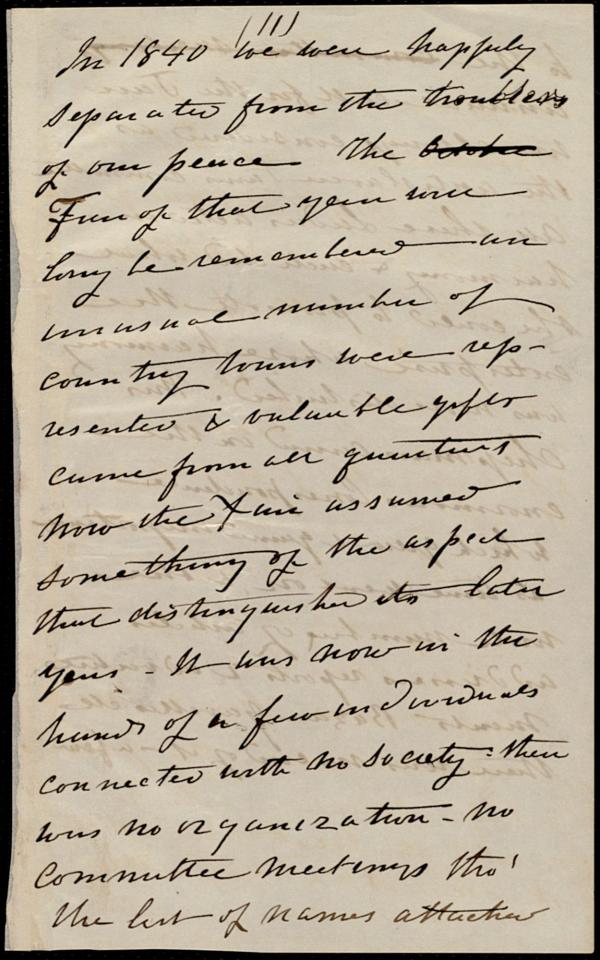 (11)
In 1840 we were happily
separated from the troublers
of our peace The October
Fair of that year will
long be remembered an
unusual number of
country towns were rep-
resented & valuable gifts
came from all quarters
Now the Fair assumed
something of the aspect
that distinguished its later
years - It was now in the
hands of a few individuals
connected with no Society: there
was no organization - no
committee meetings tho'
the list of names attached